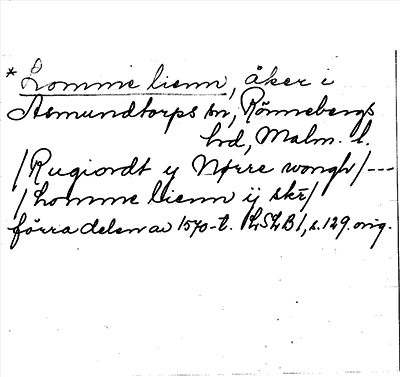 * Lomme lienn, åker i
Asmundtorps sn, Rönnebergs
hd, Malm. l.
/Rugiordt y Nørre wongh/---
/homme lienn ij skr/
förra delen av 1570-t. LSLB 1, s. 129. orig.